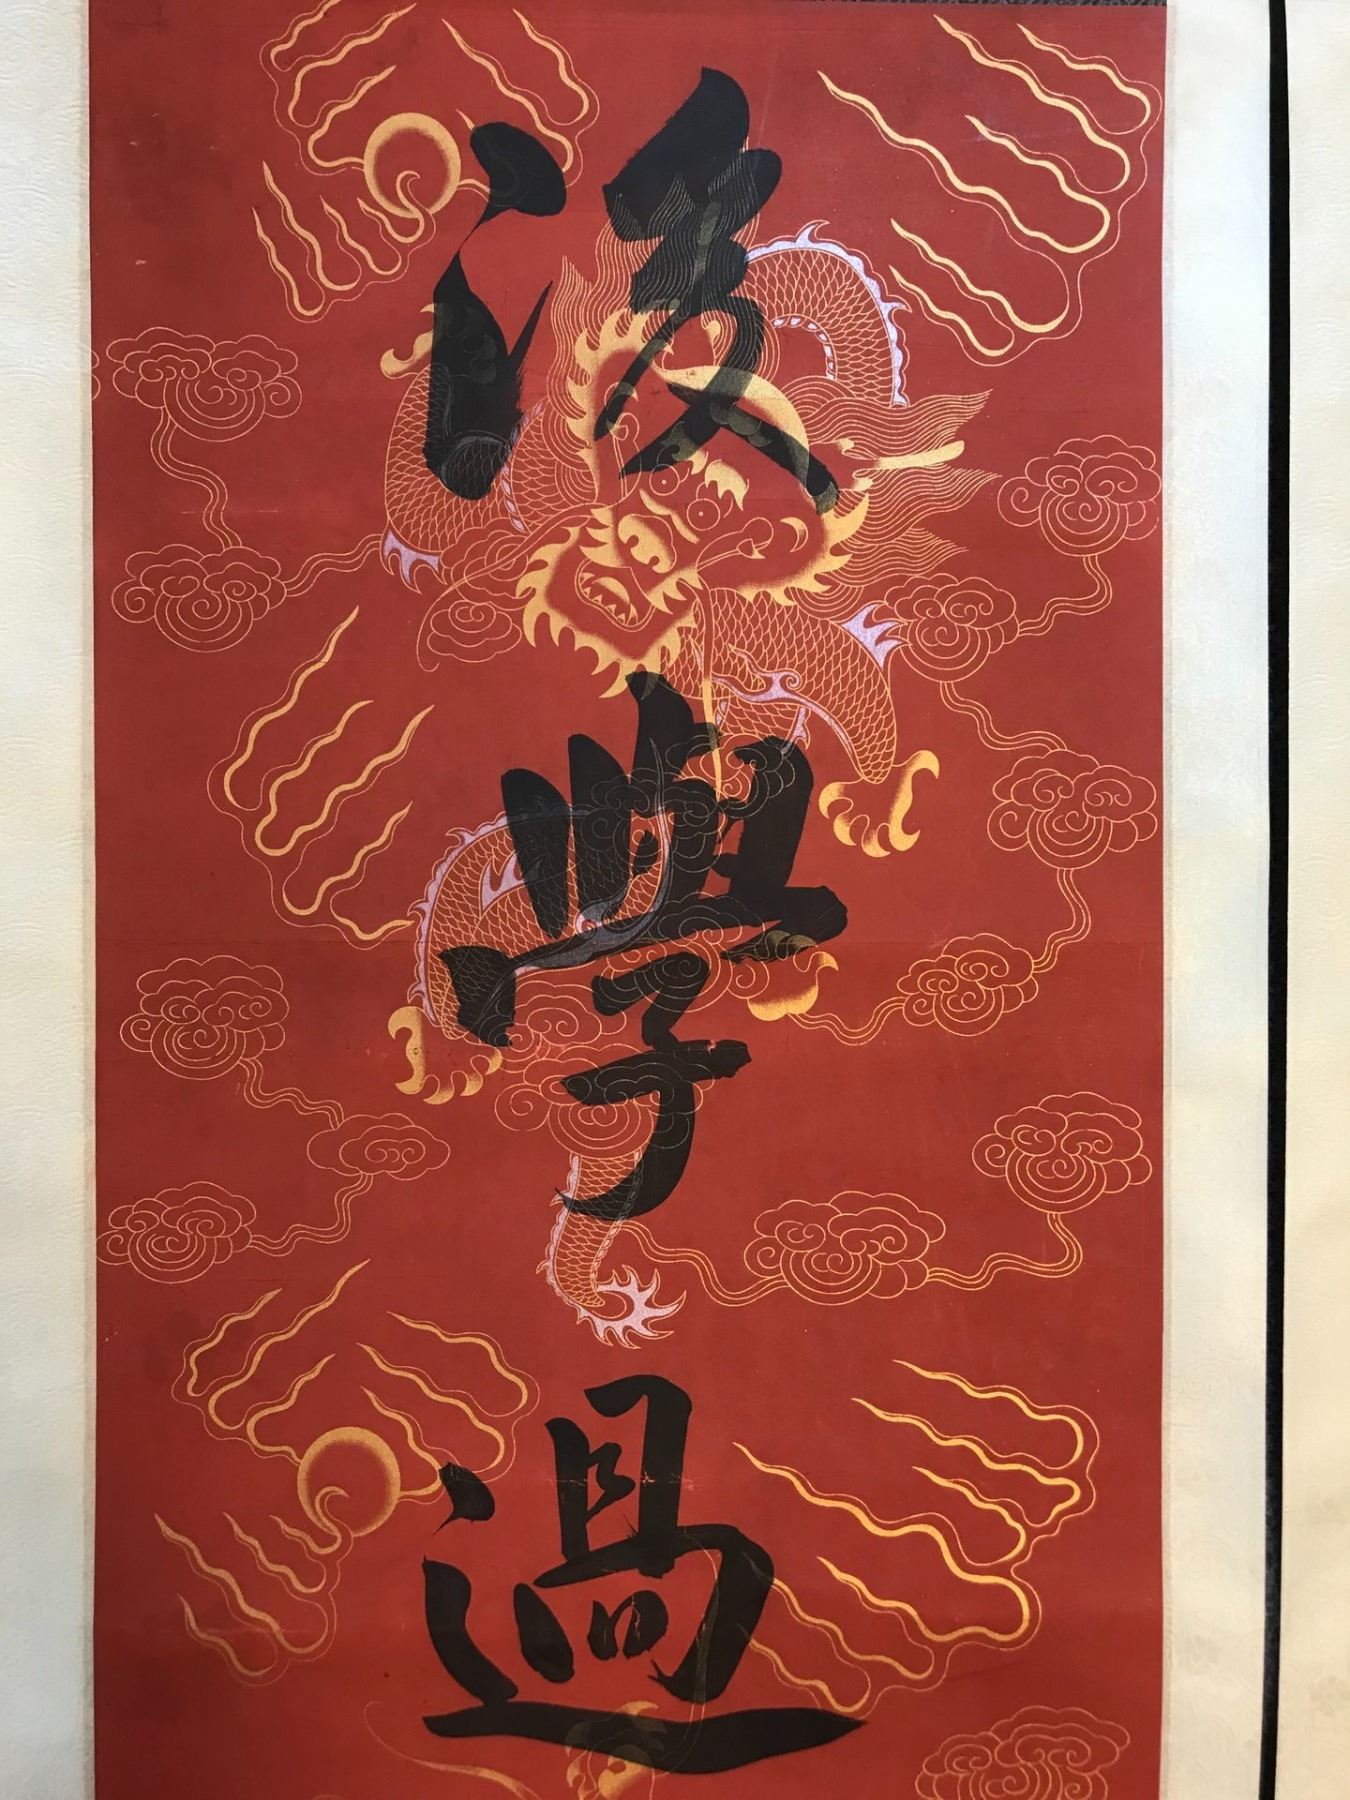 後
學
過